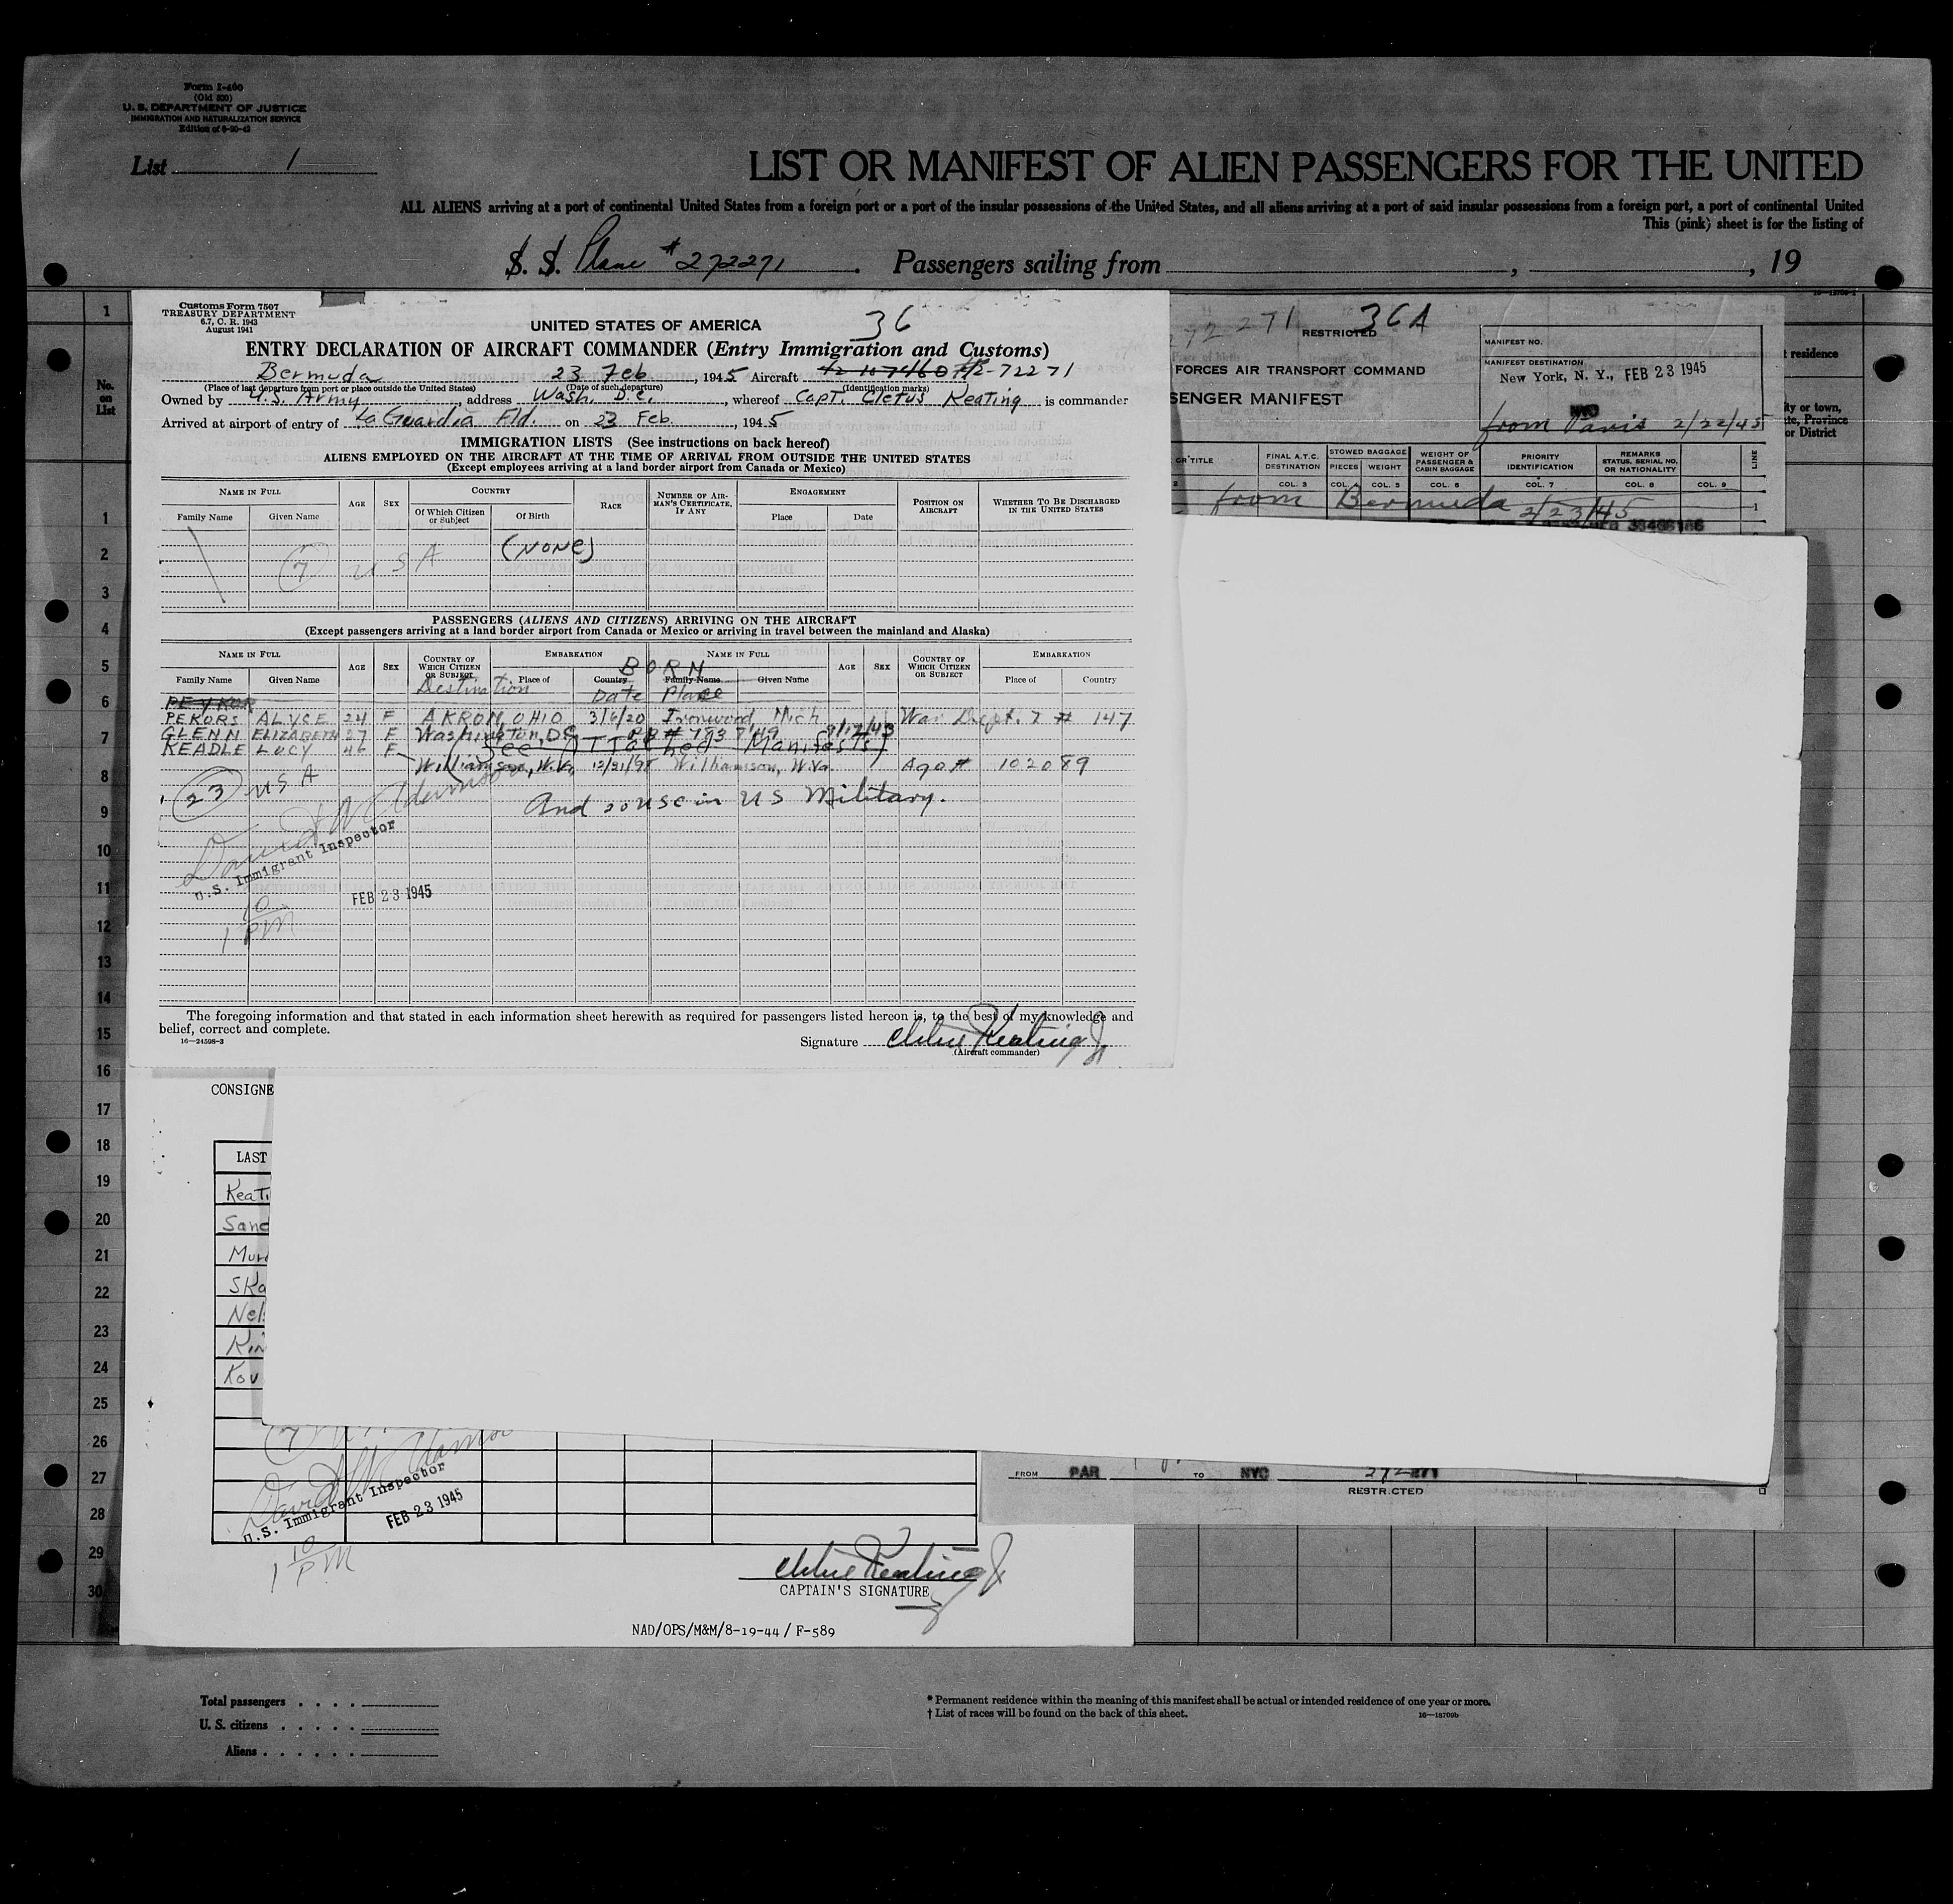 Form I-460
(Old 500)
U. S. DEPARTMENT OF JUSTICE
IMMIGRATION AND NATURALIZATION SERVICE
List 1
LIST OR MANIFEST OF ALIEN PASSENGERS FOR THE UNITED
ALL ALIENS arriving at a port of continental United States from a foreign port or a port of the insular possessions of the United States, and all aliens arriving at a port of said insular possessions from a foreign port, a port of continental United
This (pink) sheet is for the listing of
S. S. Plane #272271 . Passengers sailing from , , 19
Customs Form 7507
TREASURY DEPARTMENT
6.7, C. R. 1943
August 1941
UNITED STATES OF AMERICA 36
ENTRY DECLARATION OF AIRCRAFT COMMANDER (Entry Immigration and Customs)
Bermuda 23 Feb , 1945 Aircraft 42-72271
(Place of last departure from port or place outside the United States) (Date of such departure) (Identification marks)
Owned by U.S. Army , address Wash. D.C. , whereof Capt. Cletus Keating is commander
Arrived at airport of entry of La Guardia Fld. on 23 Feb. , 1945
IMMIGRATION LISTS (See instructions on back hereof)
ALIENS EMPLOYED ON THE AIRCRAFT AT THE TIME OF ARRIVAL FROM OUTSIDE THE UNITED STATES
(Except employees arriving at a land border airport from Canada or Mexico)
NAME IN FULL AGE SEX COUNTRY RACE NUMBER OF AIRMAN'S CERTIFICATE, IF ANY ENGAGEMENT POSITION ON AIRCRAFT WHETHER TO BE DISCHARGED IN THE UNITED STATES
Family Name Given Name Of Which Citizen or Subject Of Birth Place Date
(NONE)
7 USA
PASSENGERS (ALIENS AND CITIZENS) ARRIVING ON THE AIRCRAFT
(Except passengers arriving at a land border airport from Canada or Mexico or arriving in travel between the mainland and Alaska)
NAME IN FULL AGE SEX COUNTRY OF WHICH CITIZEN OR SUBJECT EMBARKATION BORN NAME IN FULL AGE SEX COUNTRY OF WHICH CITIZEN OR SUBJECT EMBARKATION
Family Name Given Name Place of Country Family Name Given Name Place of Country
Destination Date Place
PEKORS ALYCE 24 F AKRON, OHIO 3/6/20 Ironwood Mich War Dept. 7 # 147
GLENN ELIZABETH 27 F Washington, DC
KEADLE LUCY 46 F
(See Attached Manifests)
Williamson, W.Va. Williamson, W.Va. Ago # 102089
23 USA
And 20 USC in US Military.
David W Adamson
U.S. Immigrant Inspector
FEB 23 1945
1 10 PM
The foregoing information and that stated in each information sheet herewith as required for passengers listed hereon is, to the best of my knowledge and
belief, correct and complete.
16—24598-3
Signature Cletus Keating Jr
(Aircraft commander)
272271 RESTRICTED 36A
FORCES AIR TRANSPORT COMMAND
SENGER MANIFEST
MANIFEST NO.
MANIFEST DESTINATION
New York, N. Y., FEB 23 1945
from Paris 2/22/45
OR TITLE FINAL A.T.C. DESTINATION STOWED BAGGAGE PIECES WEIGHT WEIGHT OF PASSENGER & CABIN BAGGAGE PRIORITY IDENTIFICATION REMARKS STATUS, SERIAL NO. OR NATIONALITY LINE
2 COL. 3 COL. COL. 5 COL. 6 COL. 7 COL. 8 COL. 9
from Bermuda 2/23/45 1
residence
ity or town,
te, Province
or District
No. on List
1
1
2
3
4
5
6
7
8
9
10
11
12
13
14
15
16
17
18
19
20
21
22
23
24
25
26
27
28
29
30
CONSIGNE
LAST
Keati
Sand
Mur
Ska
Nels
Kin
Kov
7
David W Adamson
U.S. Immigrant Inspector
FEB 23 1945
1 10 PM
FROM PAR TO NYC 272271
RESTRICTED
Cletus Keating Jr
CAPTAIN'S SIGNATURE
NAD/OPS/M&M/8-19-44 / F-589
Total passengers . . . .
U. S. citizens . . . . .
Aliens . . . . . .
* Permanent residence within the meaning of this manifest shall be actual or intended residence of one year or more.
† List of races will be found on the back of this sheet.
16—18709b